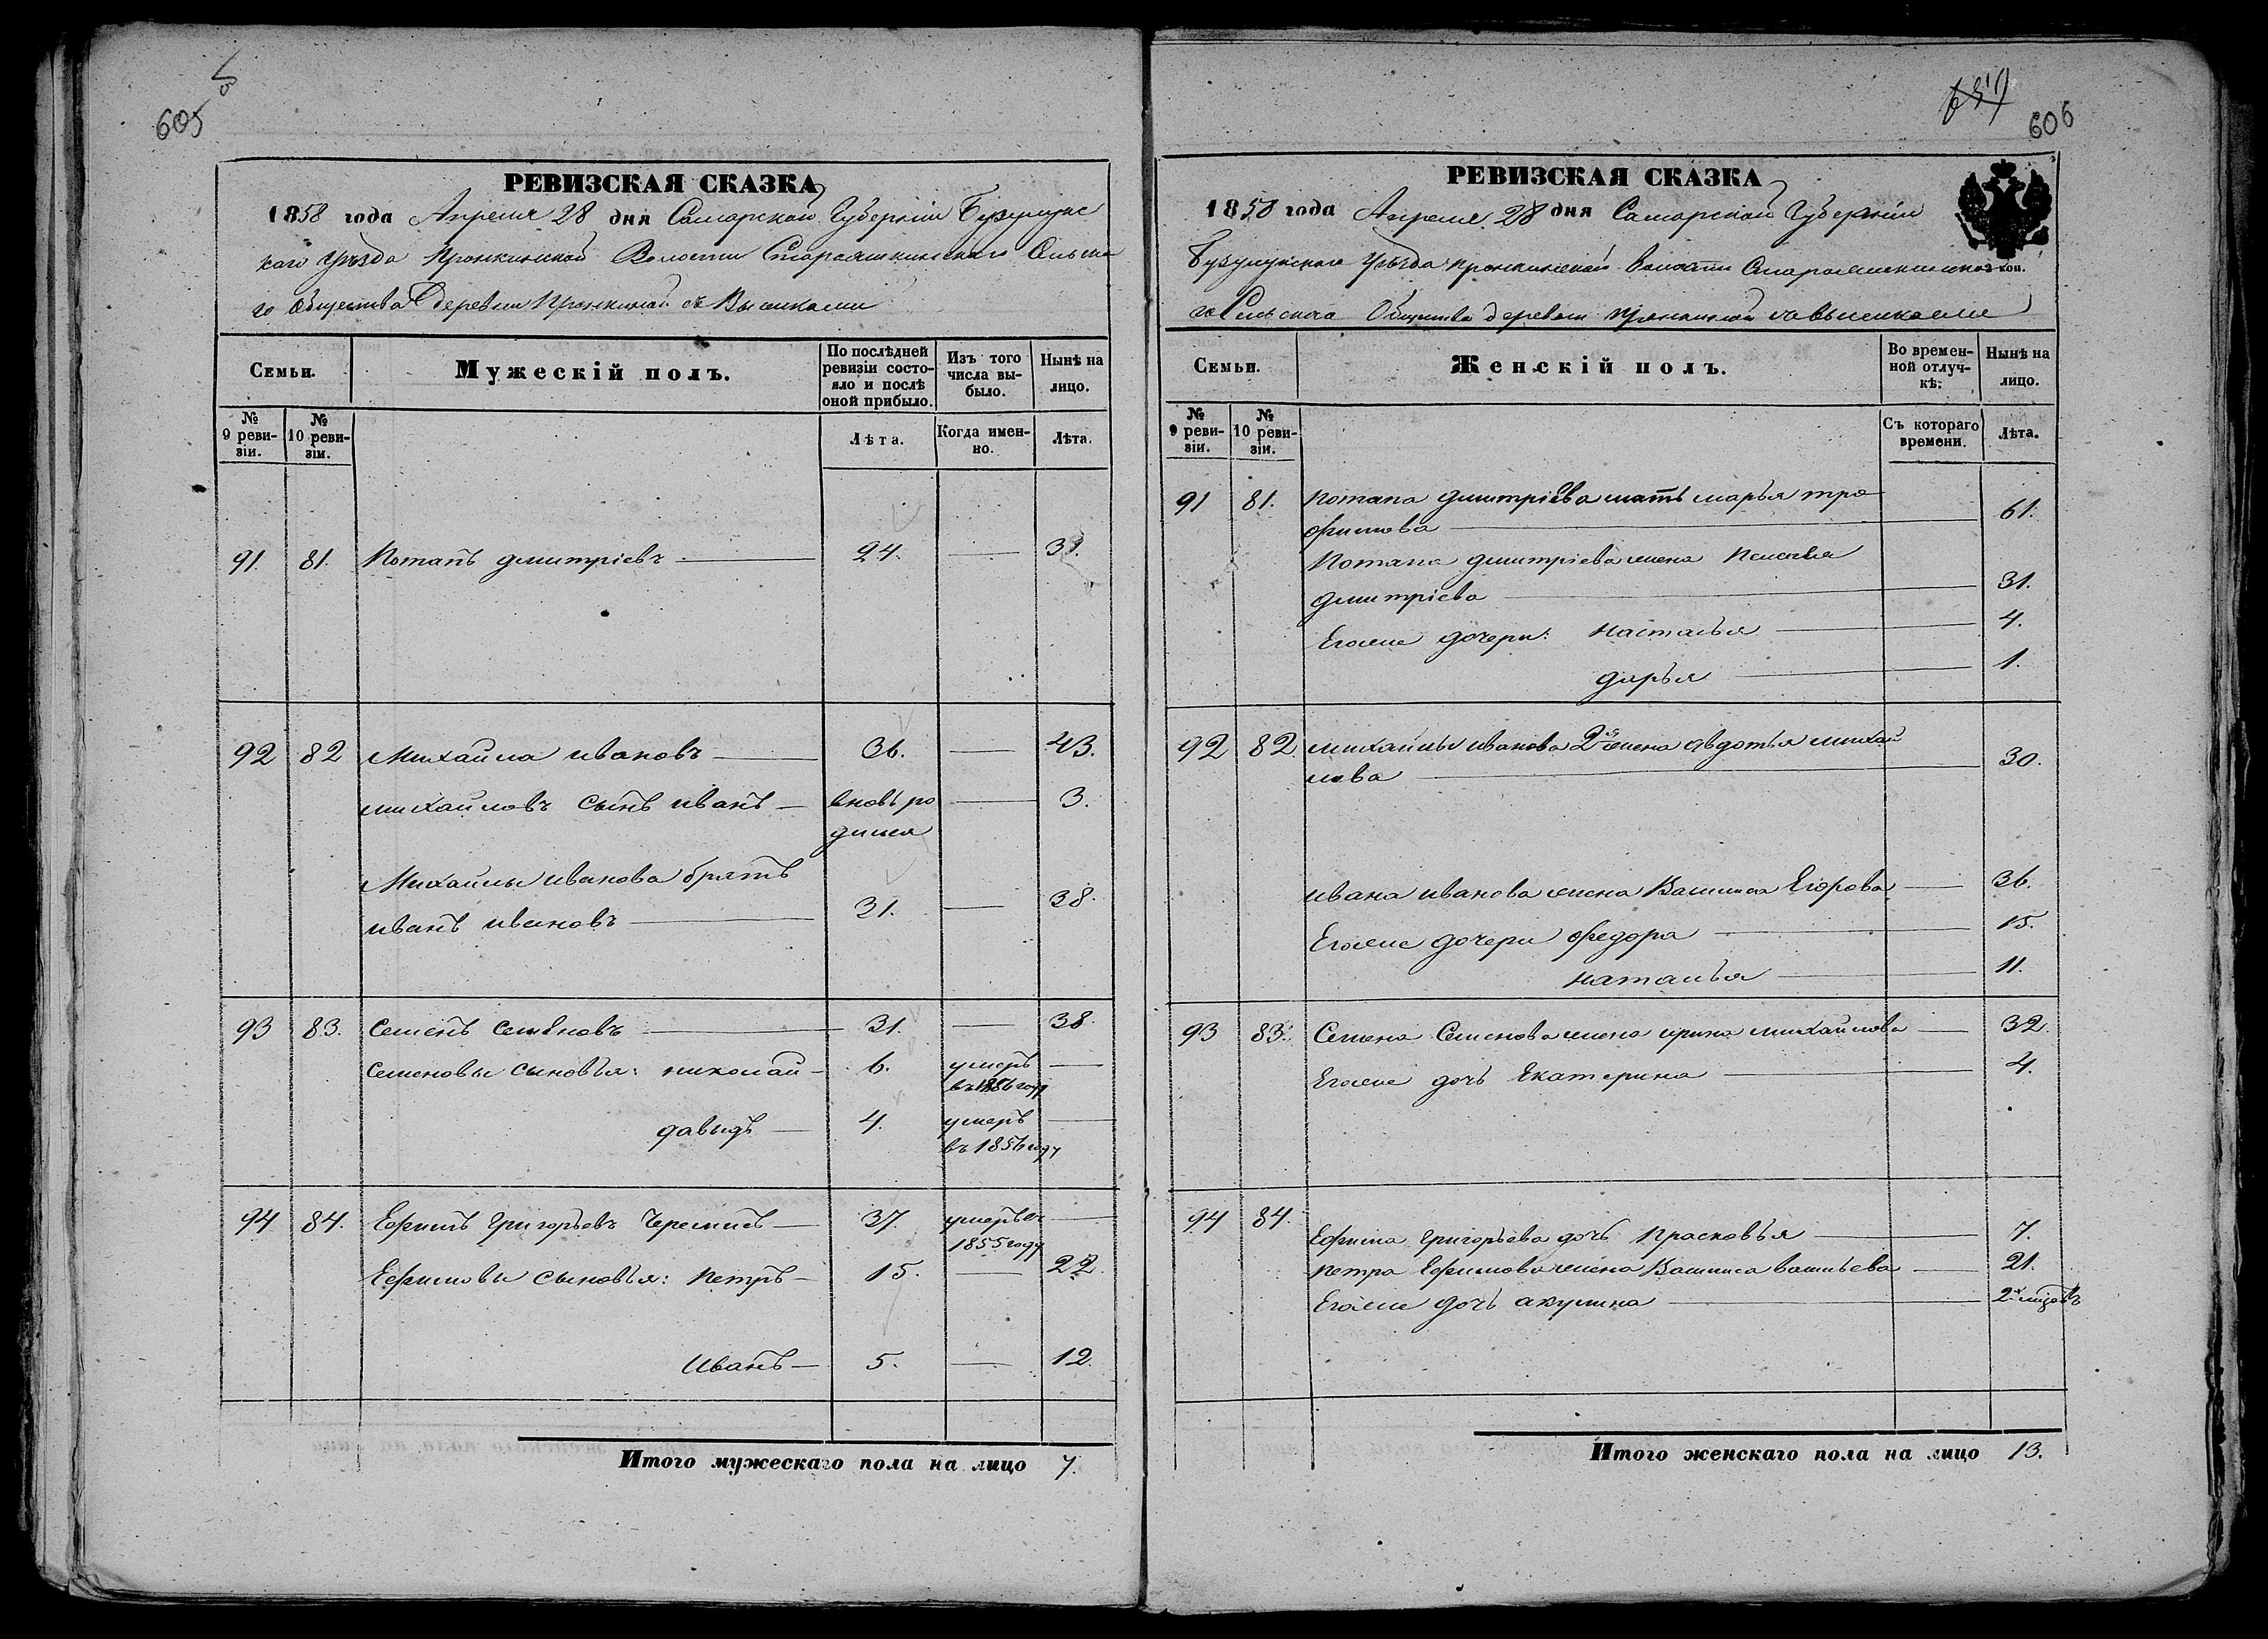 605
РЕВИЗСКАЯ СКАЗКА
1858 года Апреля 28 дня Самарской Губернии Бузулукс
каго Уѣзда Пронкинской Волости Старояшкинскаго Сельска
го Общества деревни Пронкиной съ Выселками
Семьи.
Мужескій полъ.
По послѣдней ревизіи состояло и послѣ оной прибыло.
Изъ того числа выбыло.
Нынѣ на лицо.
№ 9 ревизіи.
№ 10 ревизіи.
Лѣта.
Когда именно.
Лѣта.
91. 81. Потапъ дмитріевъ — 24. — 31.
92 82 Михайла ивановъ — 36. — 43.
михайловъ сынъ иванъ — вновь ро — 3.
дился
Михайлы иванова братъ
иванъ ивановъ — 31. — 38.
93 83. Семенъ Семеновъ — 31. — 38.
Семеновы сыновья: николай — 6. умеръ —
въ 1856 году
давыдъ — 4. умеръ —
въ 1856 году
94 84. Ефимъ Григорьевъ Черемисъ — 37. умеръ въ —
1855 году
Ефимовы сыновья: Петръ — 15. — 22
Иванъ — 5. — 12.
Итого мужескаго пола на лицо 7.
606
РЕВИЗСКАЯ СКАЗКА
1858 года Апреля 28 дня Самарской Губернии
Бузулукскаго Уѣзда пронкинской волости Старояшкинска
го Сельскаго Общества деревни Пронкиной с выселками
коп.
Семьи.
Женскій полъ.
Во временной отлучкѣ:
Нынѣ на лицо.
№ 9 ревизіи.
№ 10 ревизіи.
Съ котораго времени.
Лѣта.
91 81. Потапа дмитріева мать марья тро
фимова — 61.
Потапа дмитріева жена Пелагея
дмитріева — 31.
Егоже дочери: настасья — 4.
дарья — 1.
92 82. михайлы иванова 2я жена авдотья михай
лова — 30.
ивана иванова жена Василиса Егорова — 36.
Егоже дочери федора — 15.
наталья — 11.
93 83. Семена Семенова жена ирина михайлова — 32.
Егоже дочь Екатерина — 4.
94 84.
Ефима Григорьева дочь Прасковья — 7.
петра Ефимова жена Василиса васильева — 21.
Егоже дочь акулина — 2х
Итого женскаго пола на лицо 13.